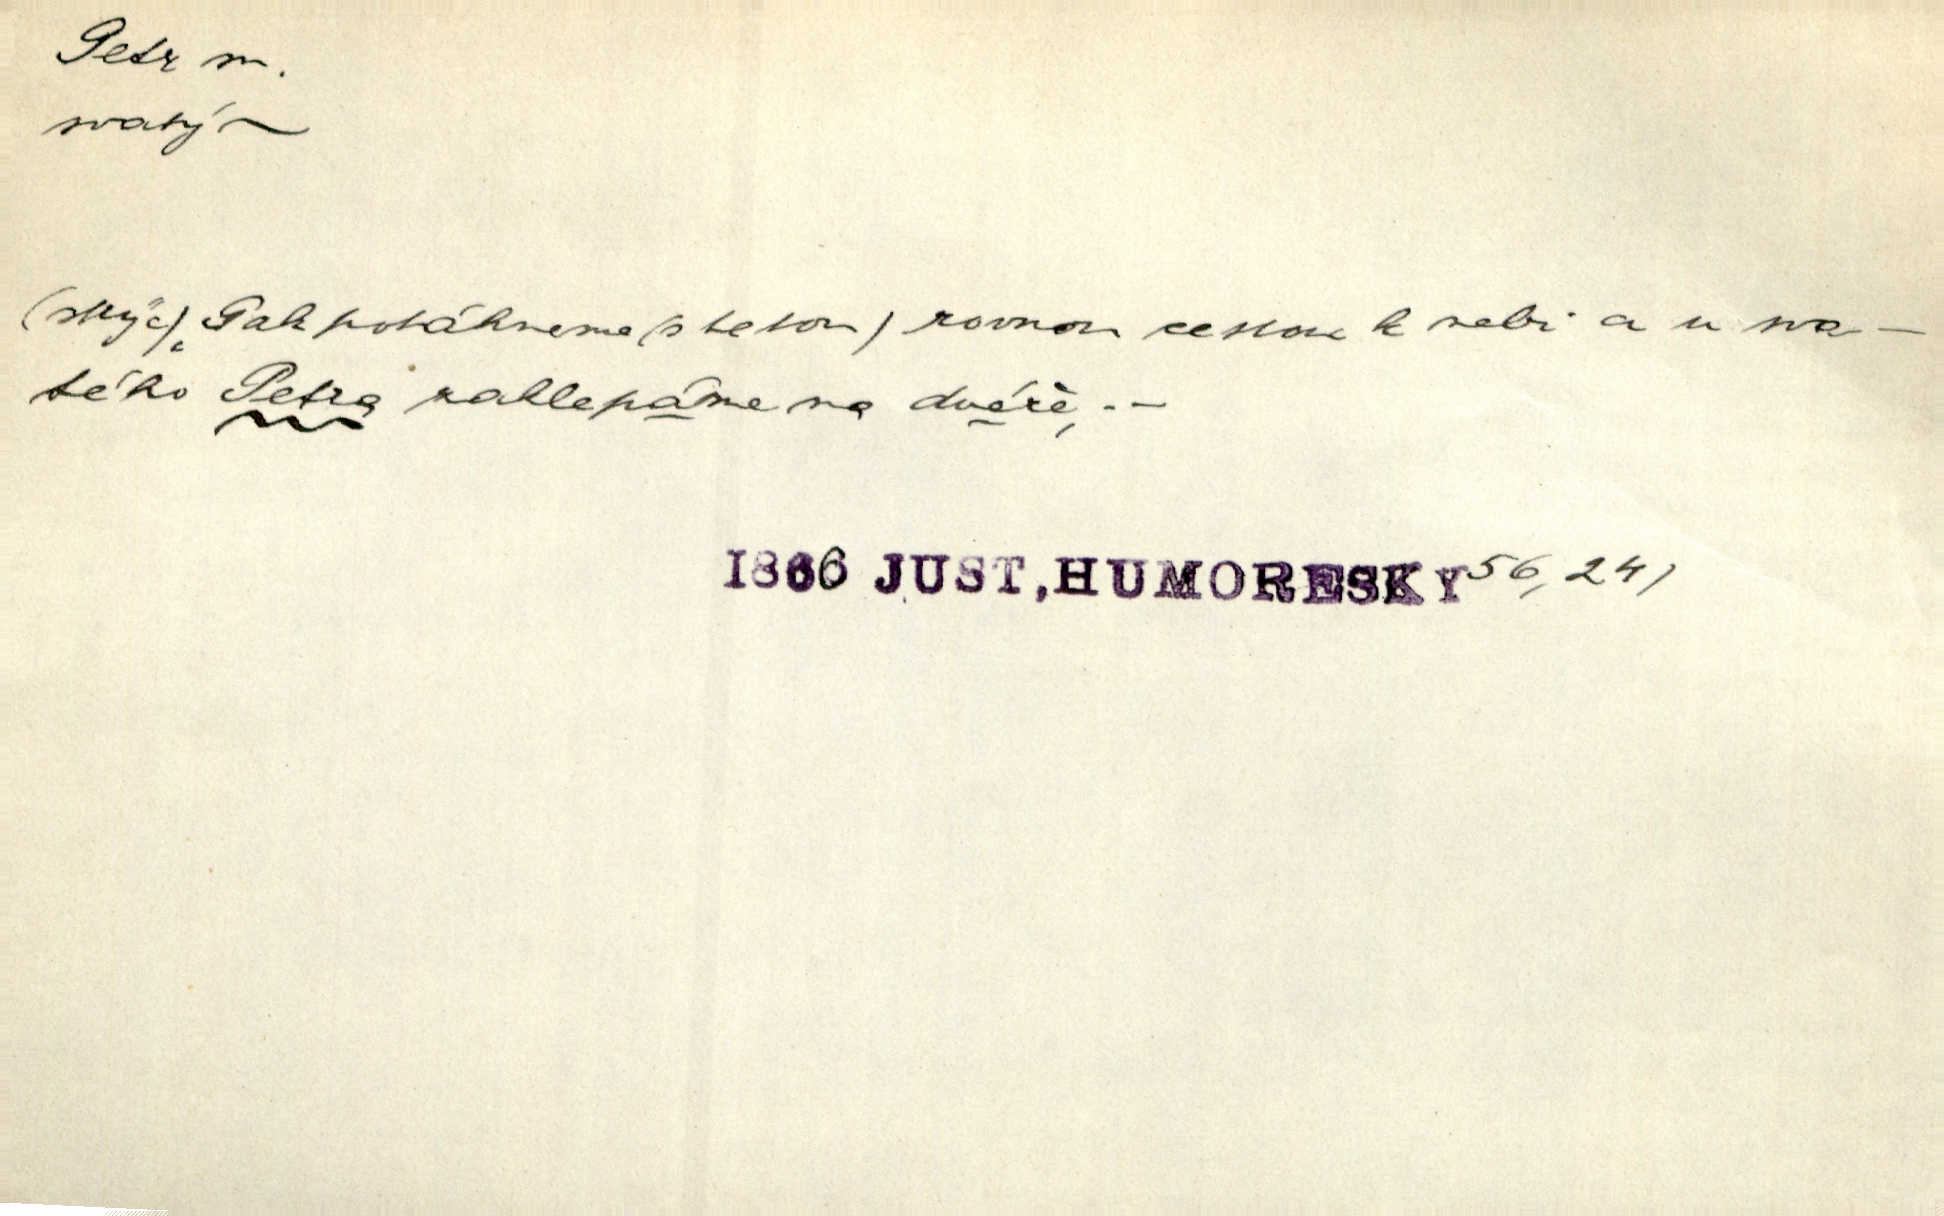 Petr m.
svatý ~
(strýc) „Pak potáhneme (s tetou) rovnou cestou k nebi a u sva-
tého Petra zaklepáme na dvéře,. -
1866 JUST, HUMORESKY 56, 24)